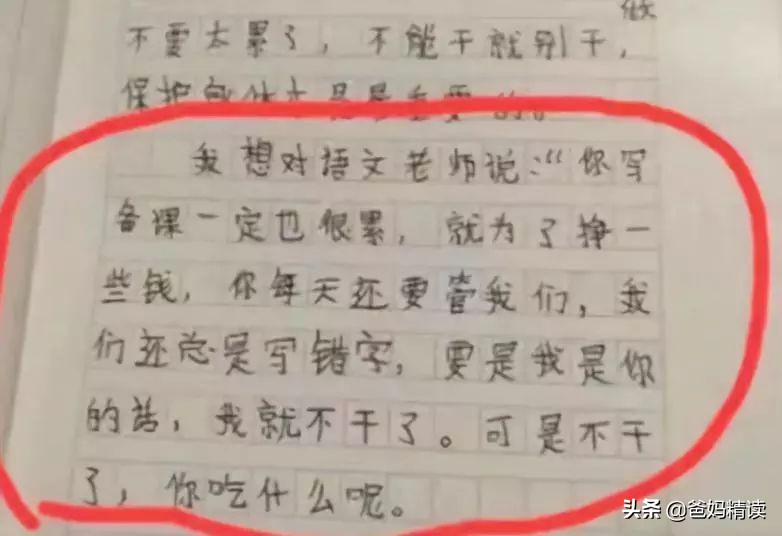 做
不要太累了，不能干就别干，
保护身体才是最重要的。
我想对语文老师说：“你写
备课一定也很累，就为了挣一
些钱，你每天还要管我们，我
们还总是写错字，要是我是你
的话，我就不干了。可是不干
了，你吃什么呢。
头条 @爸妈精读